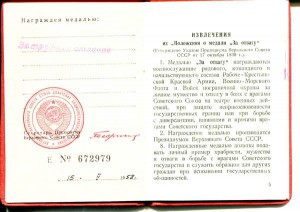 Награжден медалью:
Секретарь Президиума
Верховного Совета СССР
Е № 672979
15
ИЗВЛЕЧЕНИЯ
из „Положения о медали „За отвагу"
(Утверждено Указом Президиума Верховного Совета
СССР от 17 октября 1938 г.)
1. Медалью „За отвагу" награждаются
военнослужащие рядового, командного и
начальствующего состава Рабоче-Крестьян-
ской Красной Армии, Военно-Морского
Флота и Войск пограничной охраны за
личное мужество и отвагу в боях с врагами
Советского Союза на театре военных дей-
ствий, при защите неприкосновенности
государственных границ или при борьбе
с диверсантами, шпионами и прочими вра-
гами Советского государства.
2. Награждение медалью производится
Президиумом Верховного Совета СССР.
8. Награжденные медалью должны подавать
личный пример храбрости, мужества
и отваги в борьбе с врагами Советского
государства и служить образцом для других
граждан при исполнении ими государственных
обязанностей.
5